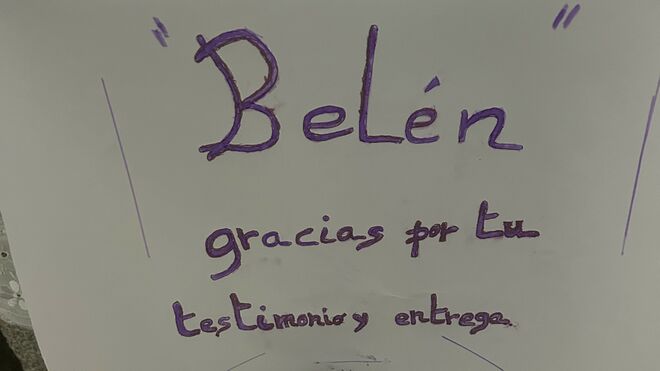 "Belén"
gracias por tu
testimonio y entrega